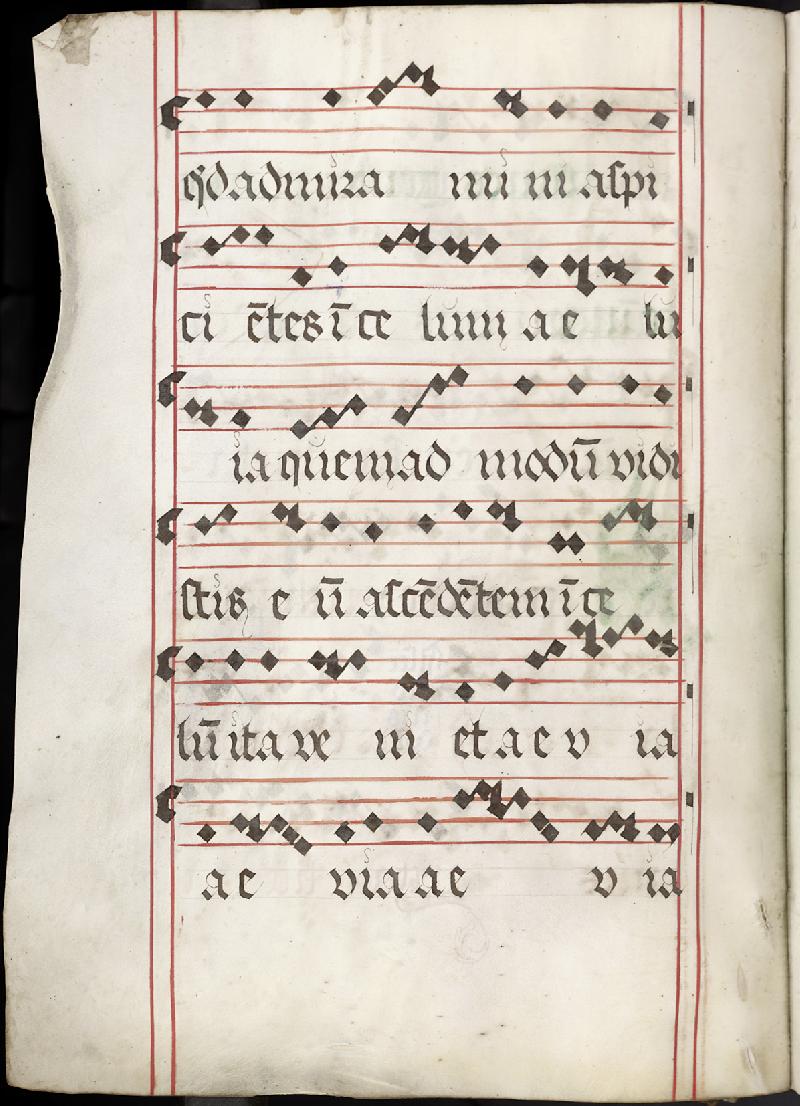 qd admira mi ni aspi
ci ētes ī ce lum ae lu
ia quemad modū vidi
stis e ū ascēdētem ī ce
lū ita ve ni et a e v ia
ae via ae v ia